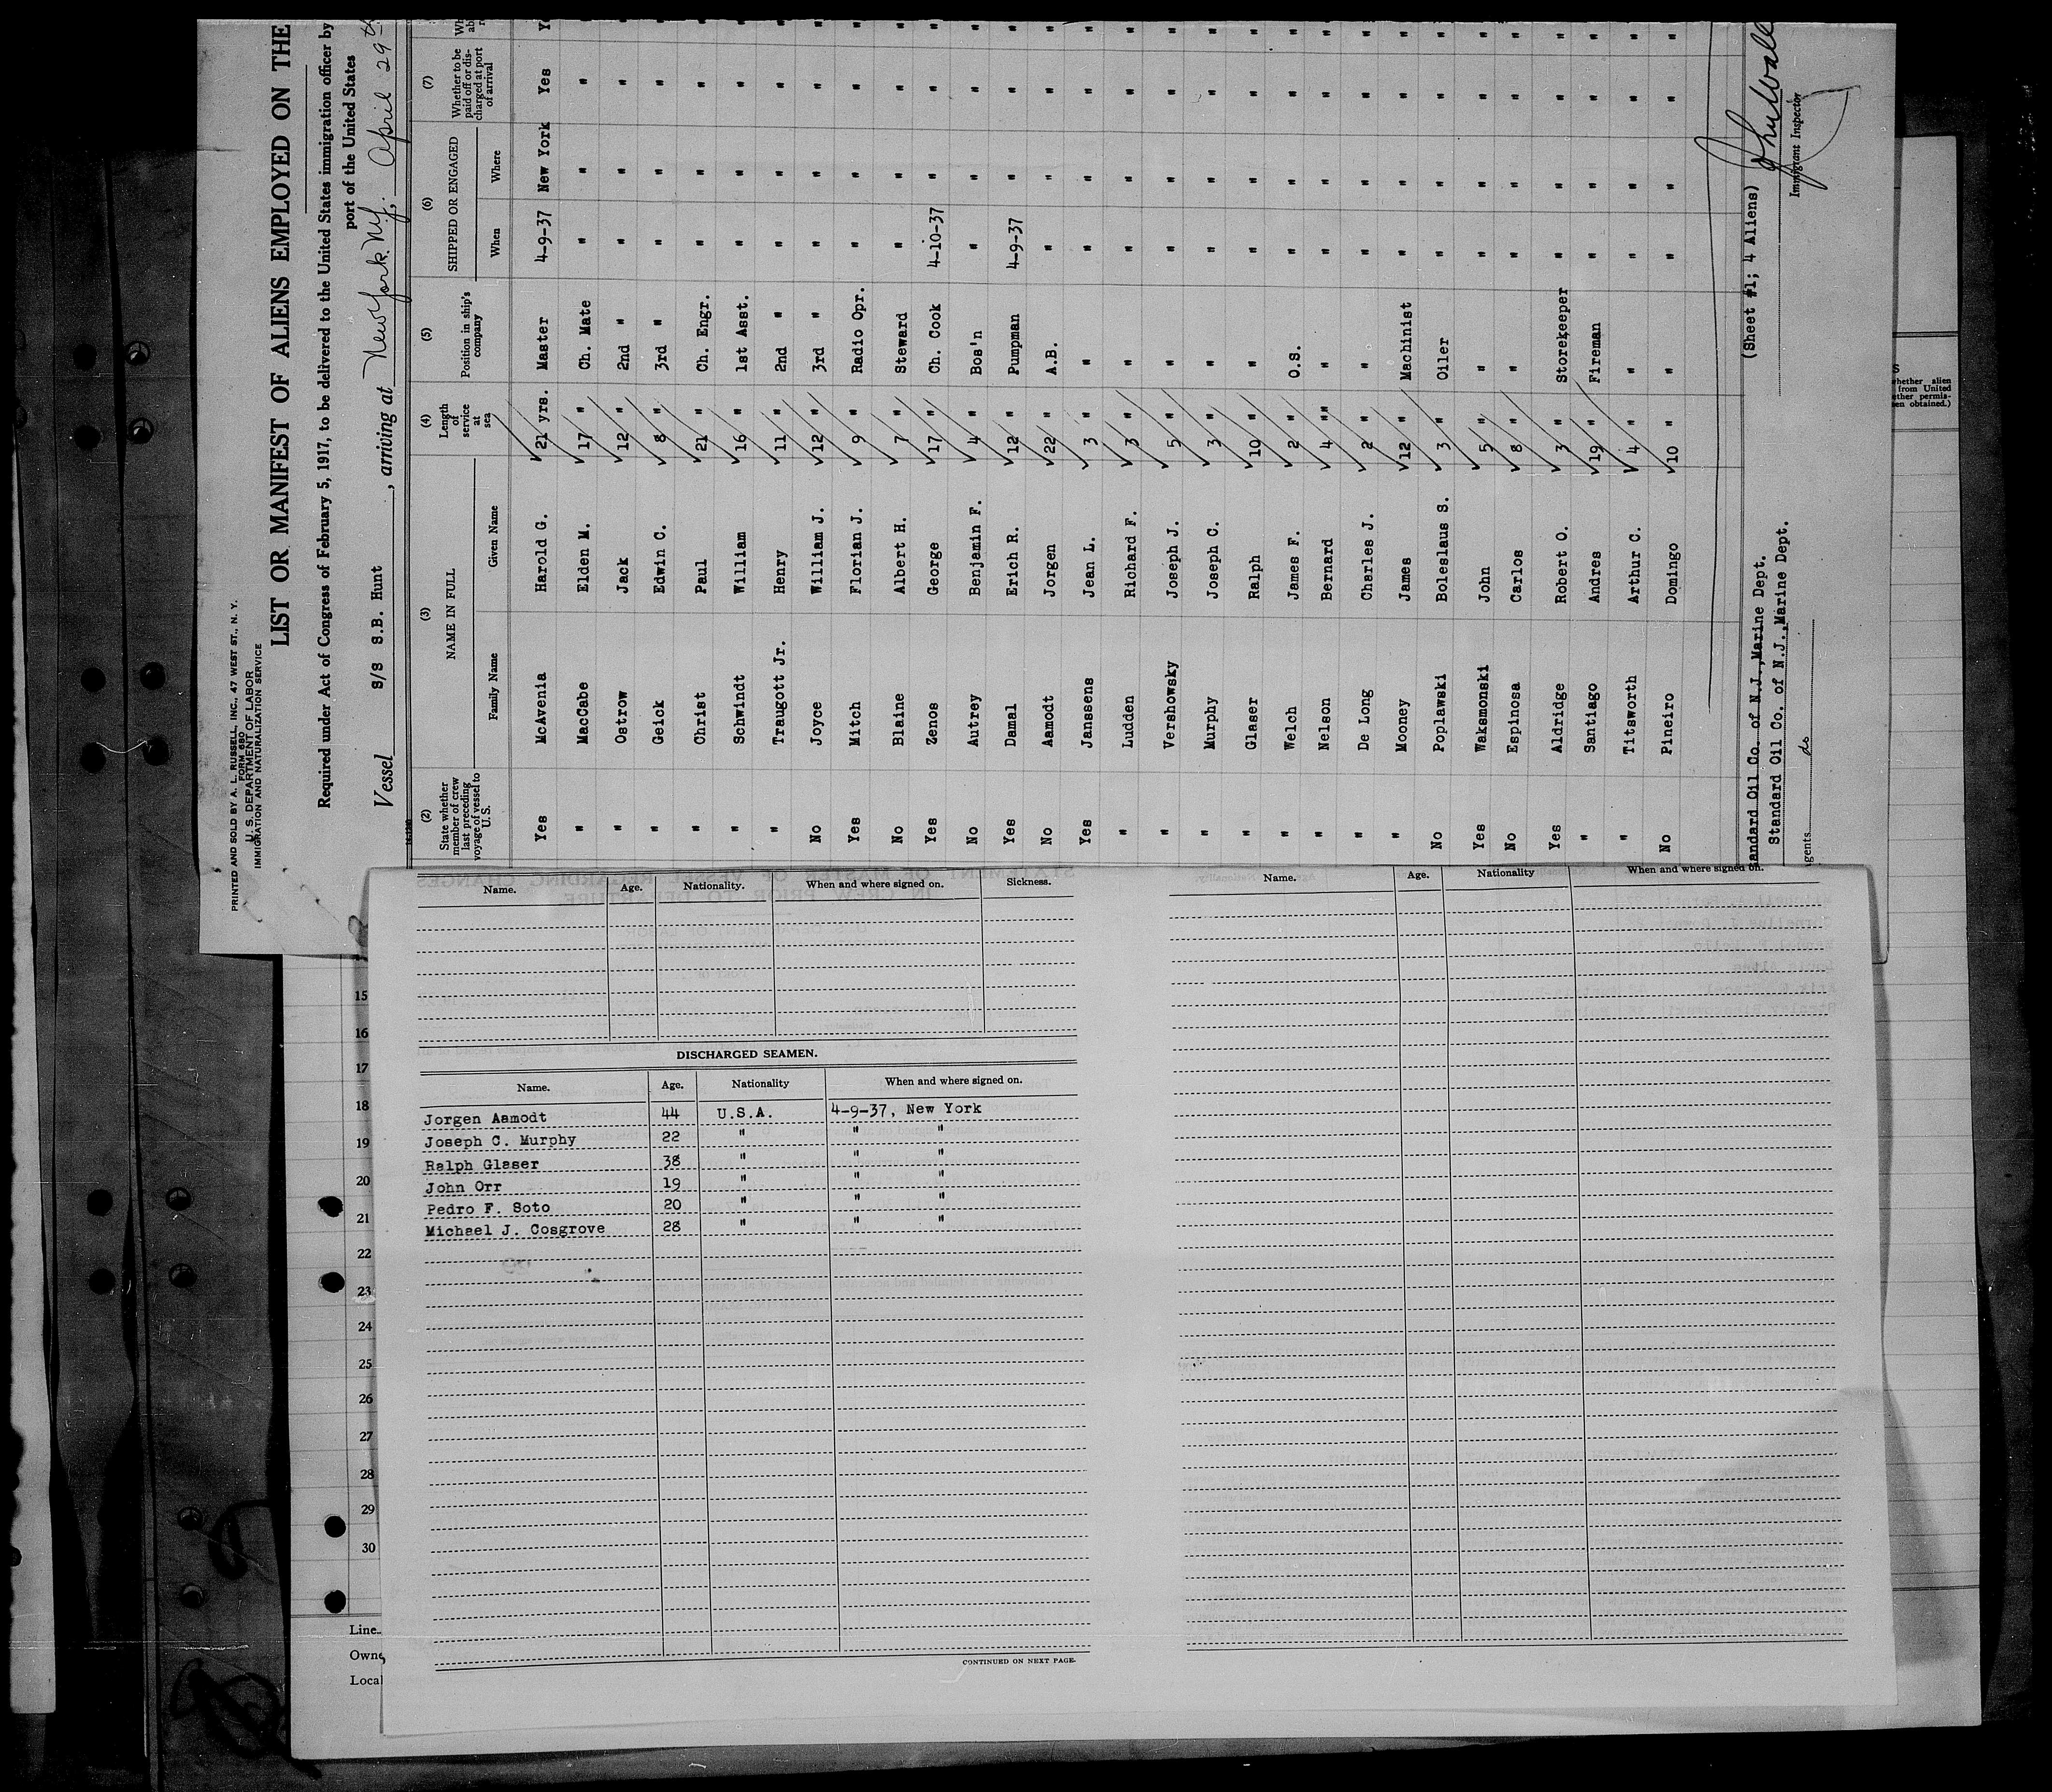 PRINTED AND SOLD BY A. L. RUSSELL, INC., 47 WEST ST., N. Y.
FORM 680
U. S. DEPARTMENT OF LABOR
IMMIGRATION AND NATURALIZATION SERVICE
LIST OR MANIFEST OF ALIENS EMPLOYED ON THE
Required under Act of Congress of February 5, 1917, to be delivered to the United States immigration officer by
port of the United States
Vessel S/S S.B. Hunt , arriving at New York, N.Y., April 29th
(2) (3) (4) (5) (6) (7)
State whether member of crew last preceding voyage of vessel to U.S. NAME IN FULL Length of service at sea Position in ship's company SHIPPED OR ENGAGED Whether to be paid off or discharged at port of arrival
Family Name Given Name When Where
Yes McAvenia Harold G. 21 yrs. Master 4-9-37 New York Yes
" MacCabe Elden M. 17 " Ch. Mate " " "
" Ostrow Jack 12 " 2nd " " " "
" Geick Edwin C. 8 " 3rd " " " "
" Christ Paul 21 " Ch. Engr. " " "
" Schwindt William 16 " 1st Asst. " " "
" Traugott Jr. Henry 11 " 2nd " " " "
No Joyce William J. 12 " 3rd " " " "
Yes Mitch Florian J. 9 " Radio Opr. " " "
No Blaine Albert H. 7 " Steward " " "
Yes Zenos George 17 " Ch. Cook 4-10-37 " "
No Autrey Benjamin F. 4 " Bos'n " " "
Yes Damal Erich R. 12 " Pumpman 4-9-37 " "
No Aamodt Jorgen 22 " A.B. " " "
Yes Janssens Jean L. 3 " " " " "
" Ludden Richard F. 3 " " " " "
" Vershowsky Joseph J. 5 " " " " "
" Murphy Joseph C. 3 " " " " "
" Glaser Ralph 10 " " " " "
" Welch James F. 2 " O.S. " " "
" Nelson Bernard 4 " " " " "
" De Long Charles J. 2 " " " " "
" Mooney James 12 " Machinist " " "
No Poplawski Boleslaus S. 3 " Oiler " " "
Yes Waksmonski John 5 " " " " "
No Espinosa Carlos 8 " " " " "
Yes Aldridge Robert O. 3 " Storekeeper " " "
" Santiago Andres 19 " Fireman " " "
" Titsworth Arthur C. 4 " " " " "
No Pineiro Domingo 10 " " " " "
Standard Oil Co. of N.J., Marine Dept. (Sheet #1; 4 Aliens)
Standard Oil Co. of N.J., Marine Dept.
gents do
Immigrant Inspector
Name. Age. Nationality. When and where signed on. Sickness.
DISCHARGED SEAMEN.
Name. Age. Nationality When and where signed on.
Jorgen Aamodt 44 U.S.A. 4-9-37, New York
Joseph C. Murphy 22 " " "
Ralph Glaser 38 " " "
John Orr 19 " " "
Pedro F. Soto 20 " " "
Michael J. Cosgrove 28 " " "
CONTINUED ON NEXT PAGE.
Name. Age. Nationality When and where signed on.
15
16
17
18
19
20
21
22
23
24
25
26
27
28
29
30
Line
Owne
Local
whether alien
from United
ther permis-
en obtained.)